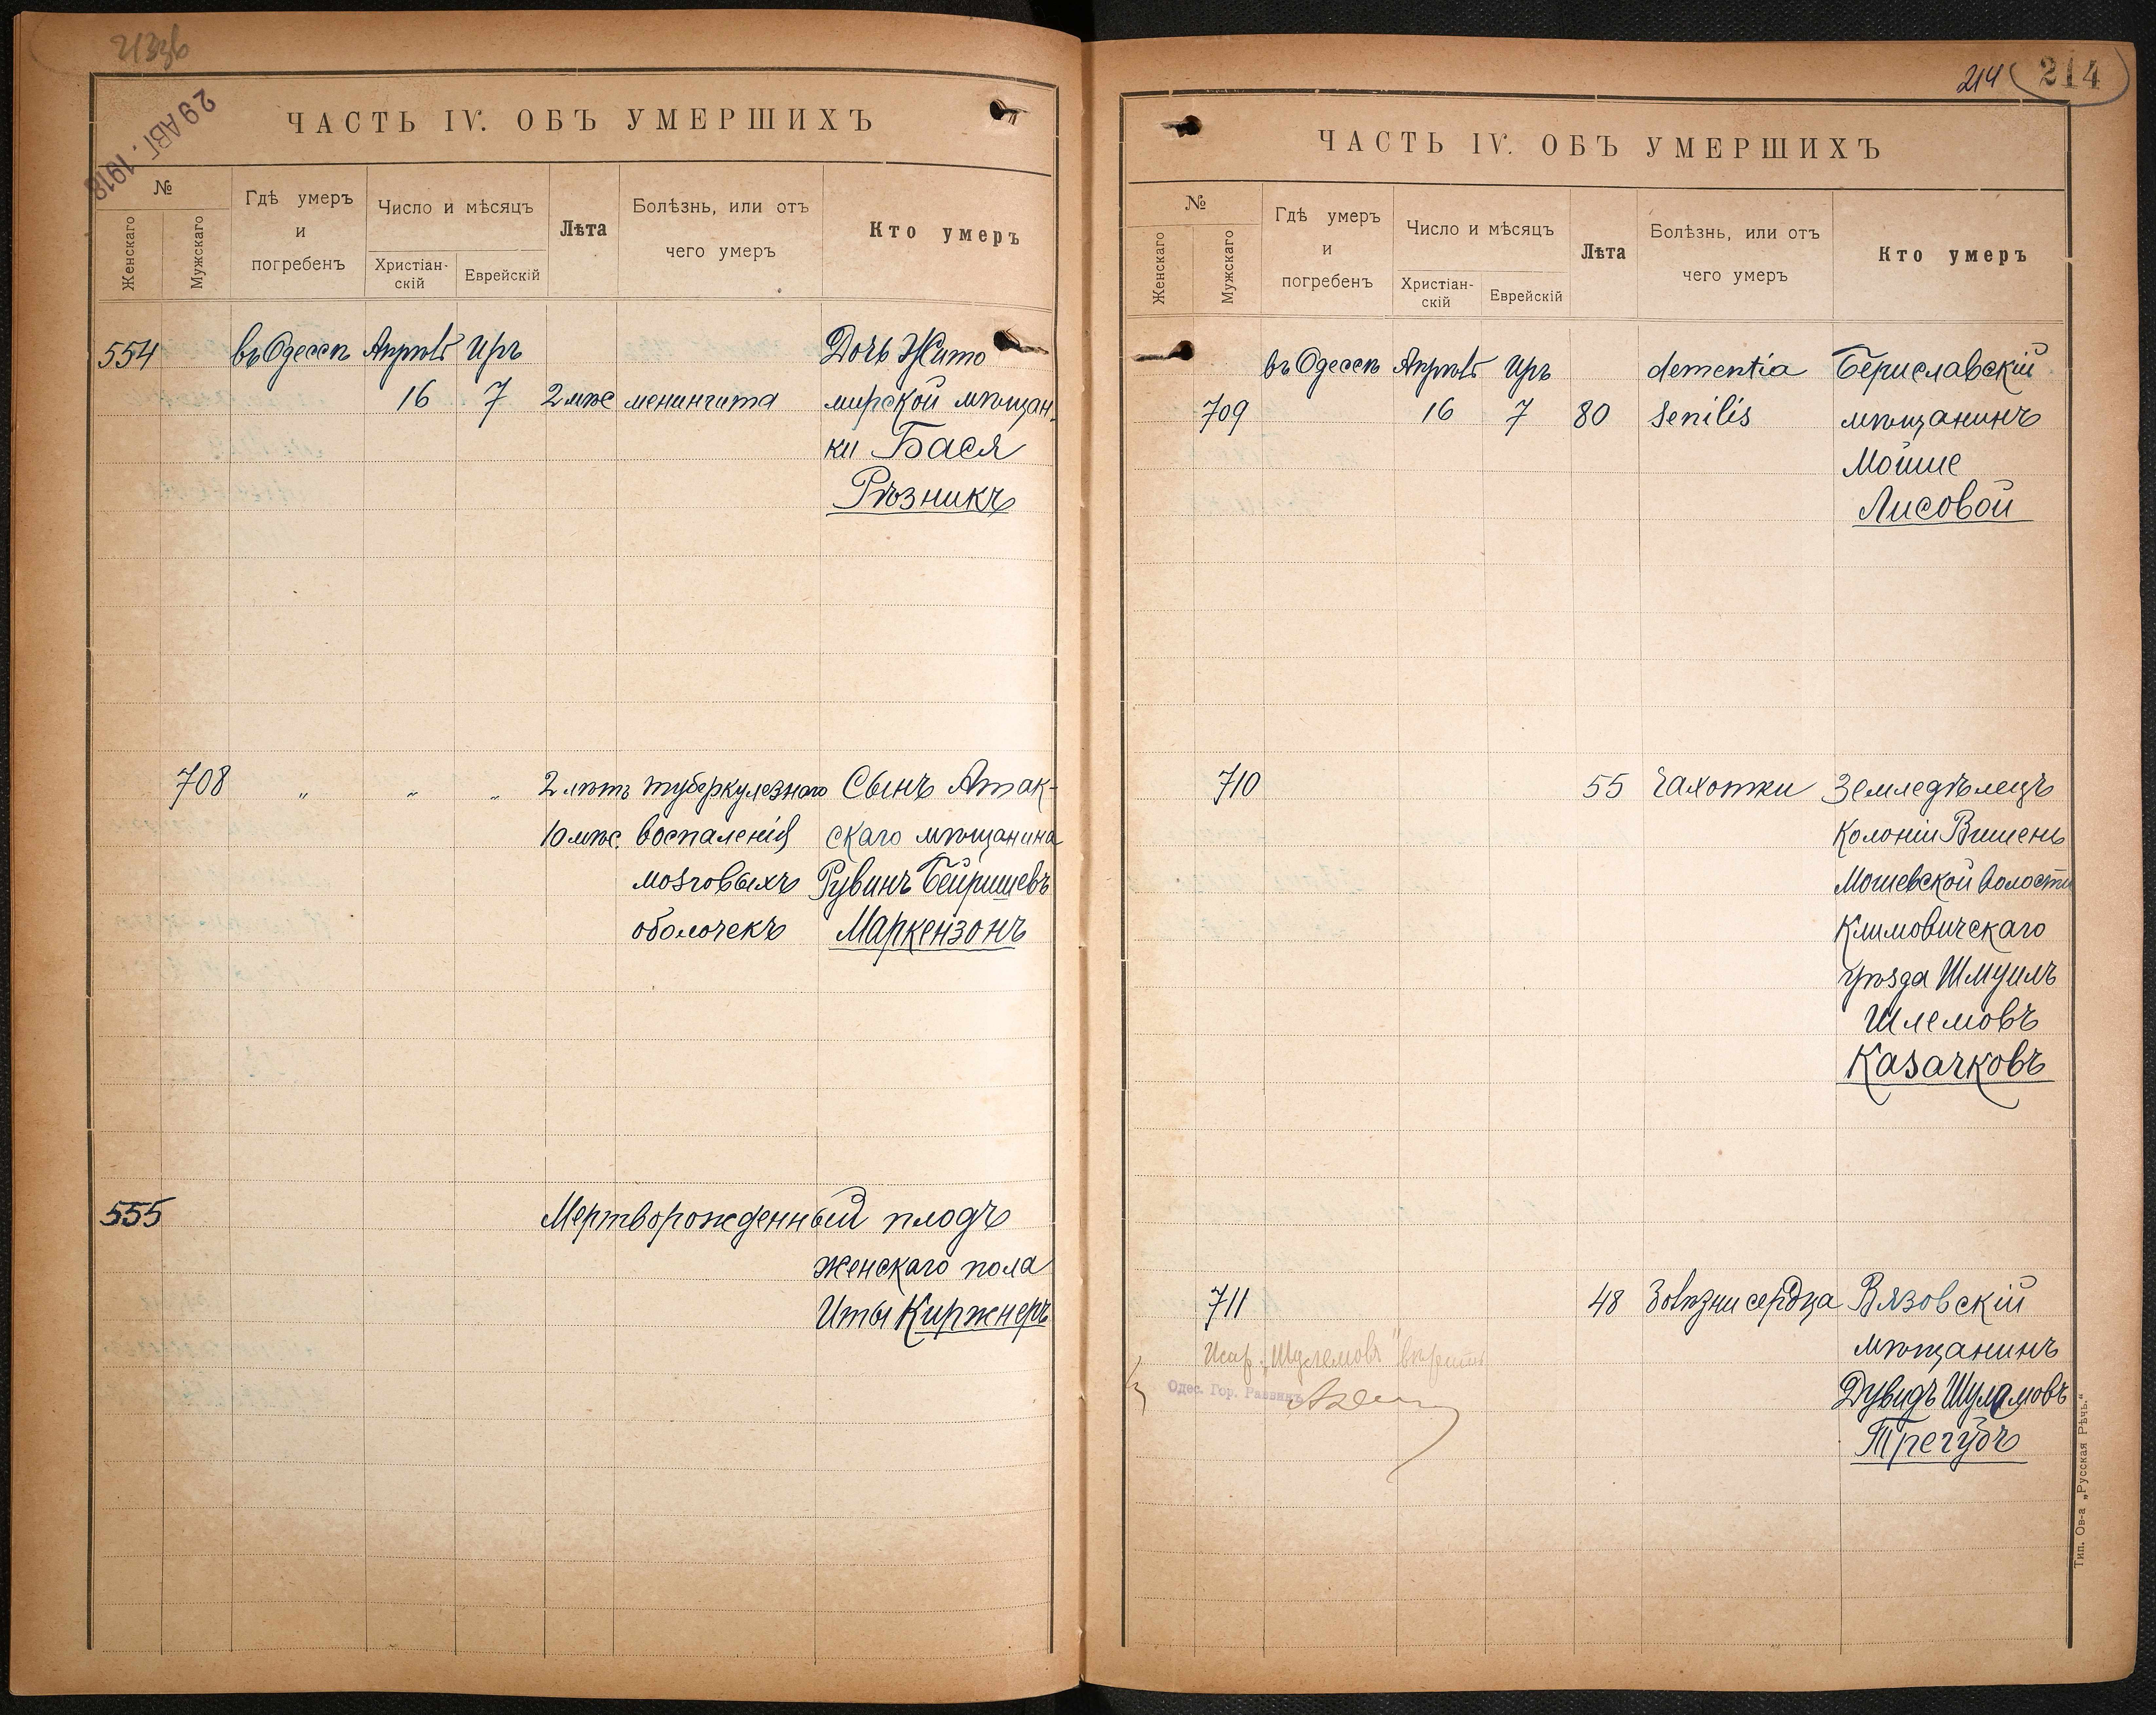 213об
29 АВГ. 1918
ЧАСТЬ IV. ОБЪ УМЕРШИХЪ
№
Женскаго
Мужскаго
Гдѣ умеръ
и
погребенъ
Число и мѣсяцъ
Христіан-
скій
Еврейскій
Лѣта
Болѣзнь, или отъ
чего умеръ
Кто умеръ
554 въ Одессѣ Апрѣль Иръ Дочь Жито
16 7 2 мѣс менингита мирской мѣщан.
ки Бася
Рѣзникъ
708 " " " 2 лѣтъ туберкулезнаго Сынъ Атак-
10 мѣс. воспаленія скаго мѣщанина
мозговыхъ Рувинъ Бейришевъ
оболочекъ Маркензонъ
555 Мертворожденный плодъ
женскаго пола
Иты Киржнеръ
214
214
ЧАСТЬ IV. ОБЪ УМЕРШИХЪ
№
Женскаго
Мужскаго
Гдѣ умеръ
и
погребенъ
Число и мѣсяцъ
Христіан-
скій
Еврейскій
Лѣта
Болѣзнь, или отъ
чего умеръ
Кто умеръ
въ Одессѣ Апрѣль Иръ dementia Бериславскій
709 16 7 80 senilis мѣщанинъ
Мойше
Лисовой
710 55 чахотки Земледѣлецъ
Колоніи Вишень
Мошевской волости
Климовичскаго
уѣзда Шмуилъ
Шлемовъ
Казачковъ
711 48 болѣзни сердца Вязовскій
мѣщанинъ
Дувидъ Шулемовъ
Трегубъ
Испр. „Шулемовъ" вѣрить
Одес. Гор. Раввинъ
Тип. Ов-а „Русская Рѣчь."